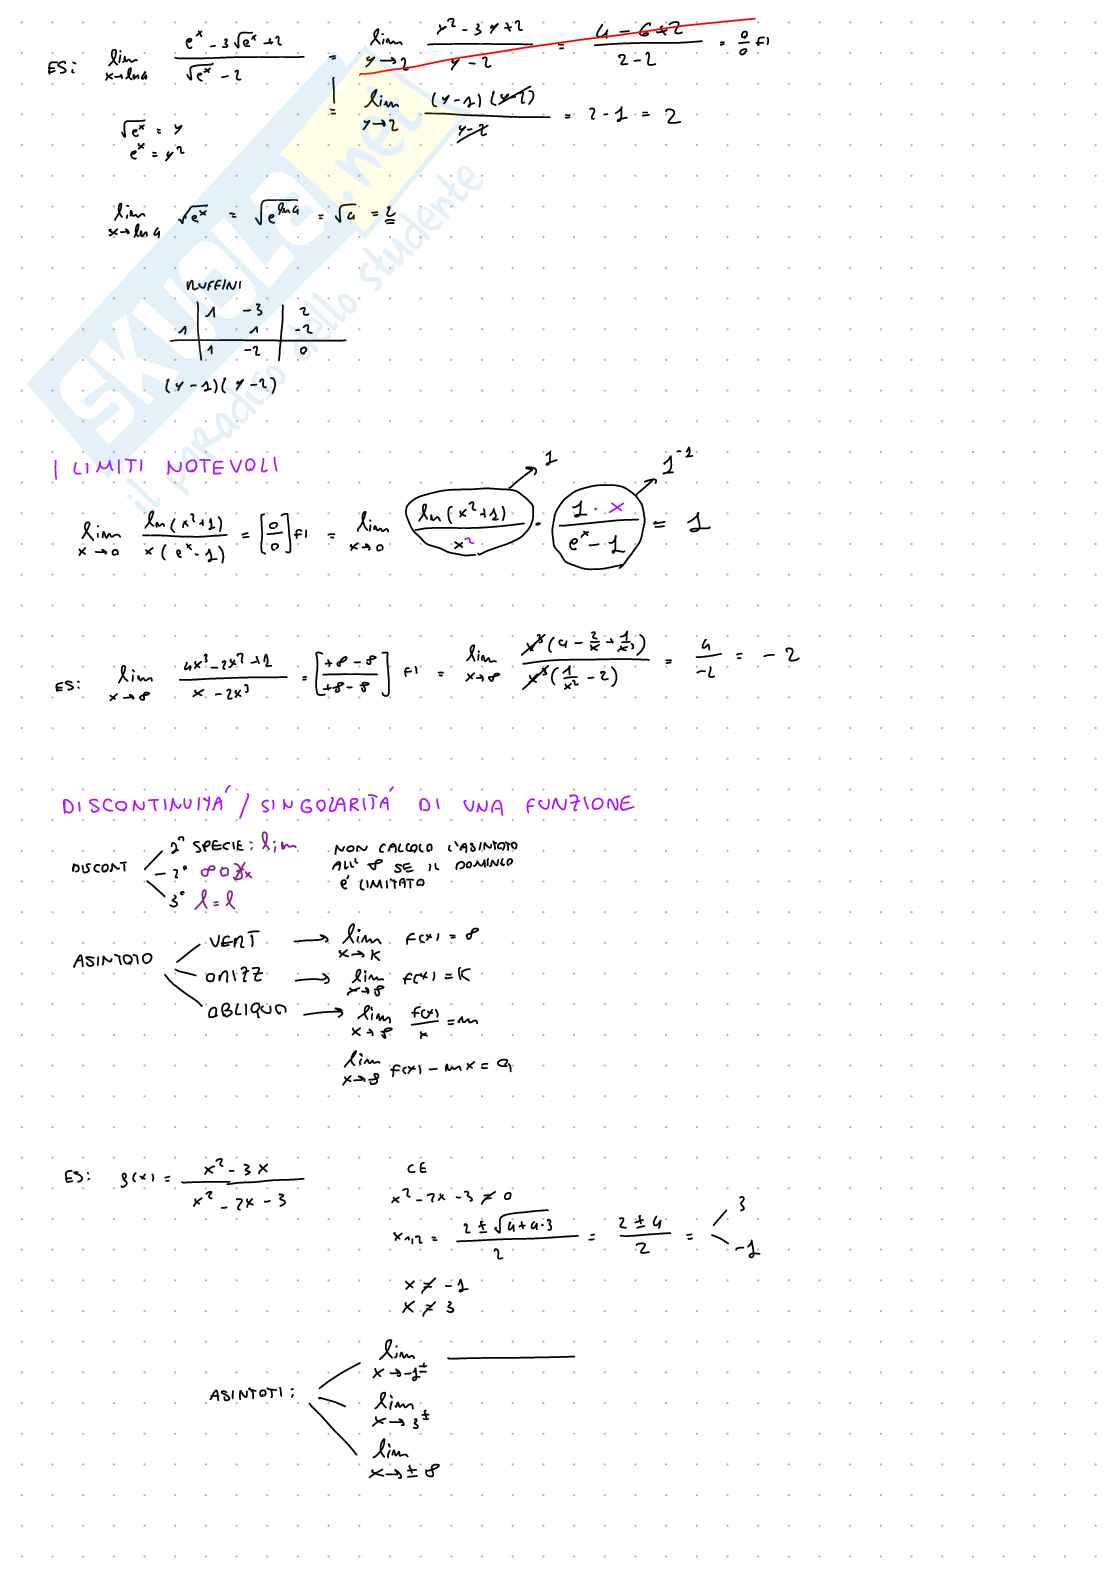 ES: lim x→ln4 (e^x - 3√e^x + 2)/(√e^x - 2) = lim y→2 (y² - 3y + 2)/(y - 2) = (4 - 6 + 2)/(2 - 2) = 0/0 FI
= lim y→2 (y-1)(y-2)/(y-2) = 2-1 = 2
√e^x = y
e^x = y²
lim x→ln4 √e^x = √e^ln4 = √4 = 2
RUFFINI
1 -3 2
1 1 -2
1 -2 0
(y-1)(y-2)
I LIMITI NOTEVOLI
lim x→0 ln(x²+1)/(x(e^x-1)) = [0/0] FI = lim x→0 ln(x²+1)/x² · (1·x)/(e^x-1) = 1
1
1^-1
ES: lim x→∞ (4x³-2x²+1)/(x-2x³) = [(+∞-∞)/(+∞-∞)] FI = lim x→∞ x³(4 - 2/x + 1/x³)/(x³(1/x² - 2)) = 4/-2 = -2
DISCONTINUITÀ / SINGOLARITÀ DI UNA FUNZIONE
DISCONT
SPECIE: lim
2° ∞ o ∄x
3° l = l
NON CALCOLO L'ASINTOTO
ALL' ∞ SE IL DOMINIO
E' LIMITATO
ASINTOTO
VERT → lim x→K F(x) = ∞
ORIZZ → lim x→∞ F(x) = K
OBLIQUO → lim x→∞ F(x)/x = m
lim x→∞ F(x) - mx = q
ES: g(x) = (x² - 3x)/(x² - 2x - 3)
CE
x² - 2x - 3 ≠ 0
x1,2 = (2 ± √4+4·3)/2 = (2 ± 4)/2 = 3
-1
x ≠ -1
x ≠ 3
ASINTOTI:
lim x→-1±
lim x→3±
lim x→±∞
SKUOLA.net
il paradiso dello studente